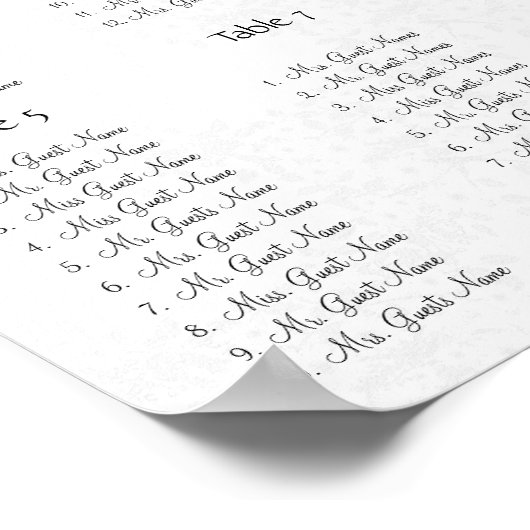 10.
11. M
12. Mrs. Gue
Name
e 5
s. Guest Name
Mr. Guest Name
3. Miss Guest Name
4. Miss Guest Name
5. Mr. Guests Name
6. Mrs. Guest Name
7. Mr. Guest Name
8. Miss. Guest Name
9. Mr. Guest Name
. Mrs. Guests Name
Table 7
1. Mrs Guest Names
2. Mr. Guest Names
3. Miss Guest Names
4. Miss Guest Names
5. Mr. Guests N
6. Mrs. Guest
7. Mr.